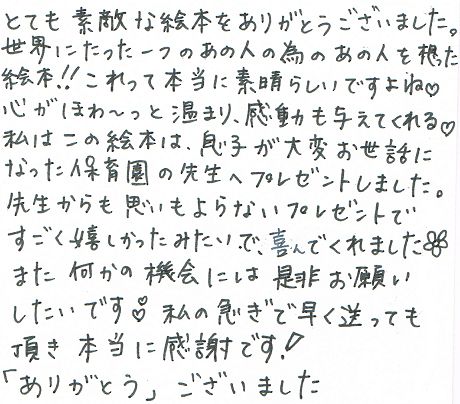 とても素敵な絵本をありがとうございました。
世界にたった一つのあの人の為のあの人を想った
絵本!!これって本当に素晴らしいですよね♡
心がほわ〜っと温まり、感動も与えてくれる♡
私はこの絵本は、息子が大変お世話に
なった保育園の先生へプレゼントしました。
先生からも思いもよらないプレゼントで
すごく嬉しかったみたいで、喜んでくれました
また何かの機会には是非お願い
したいです♡私の急ぎで早く送っても
頂き本当に感謝です!
「ありがとう」ございました